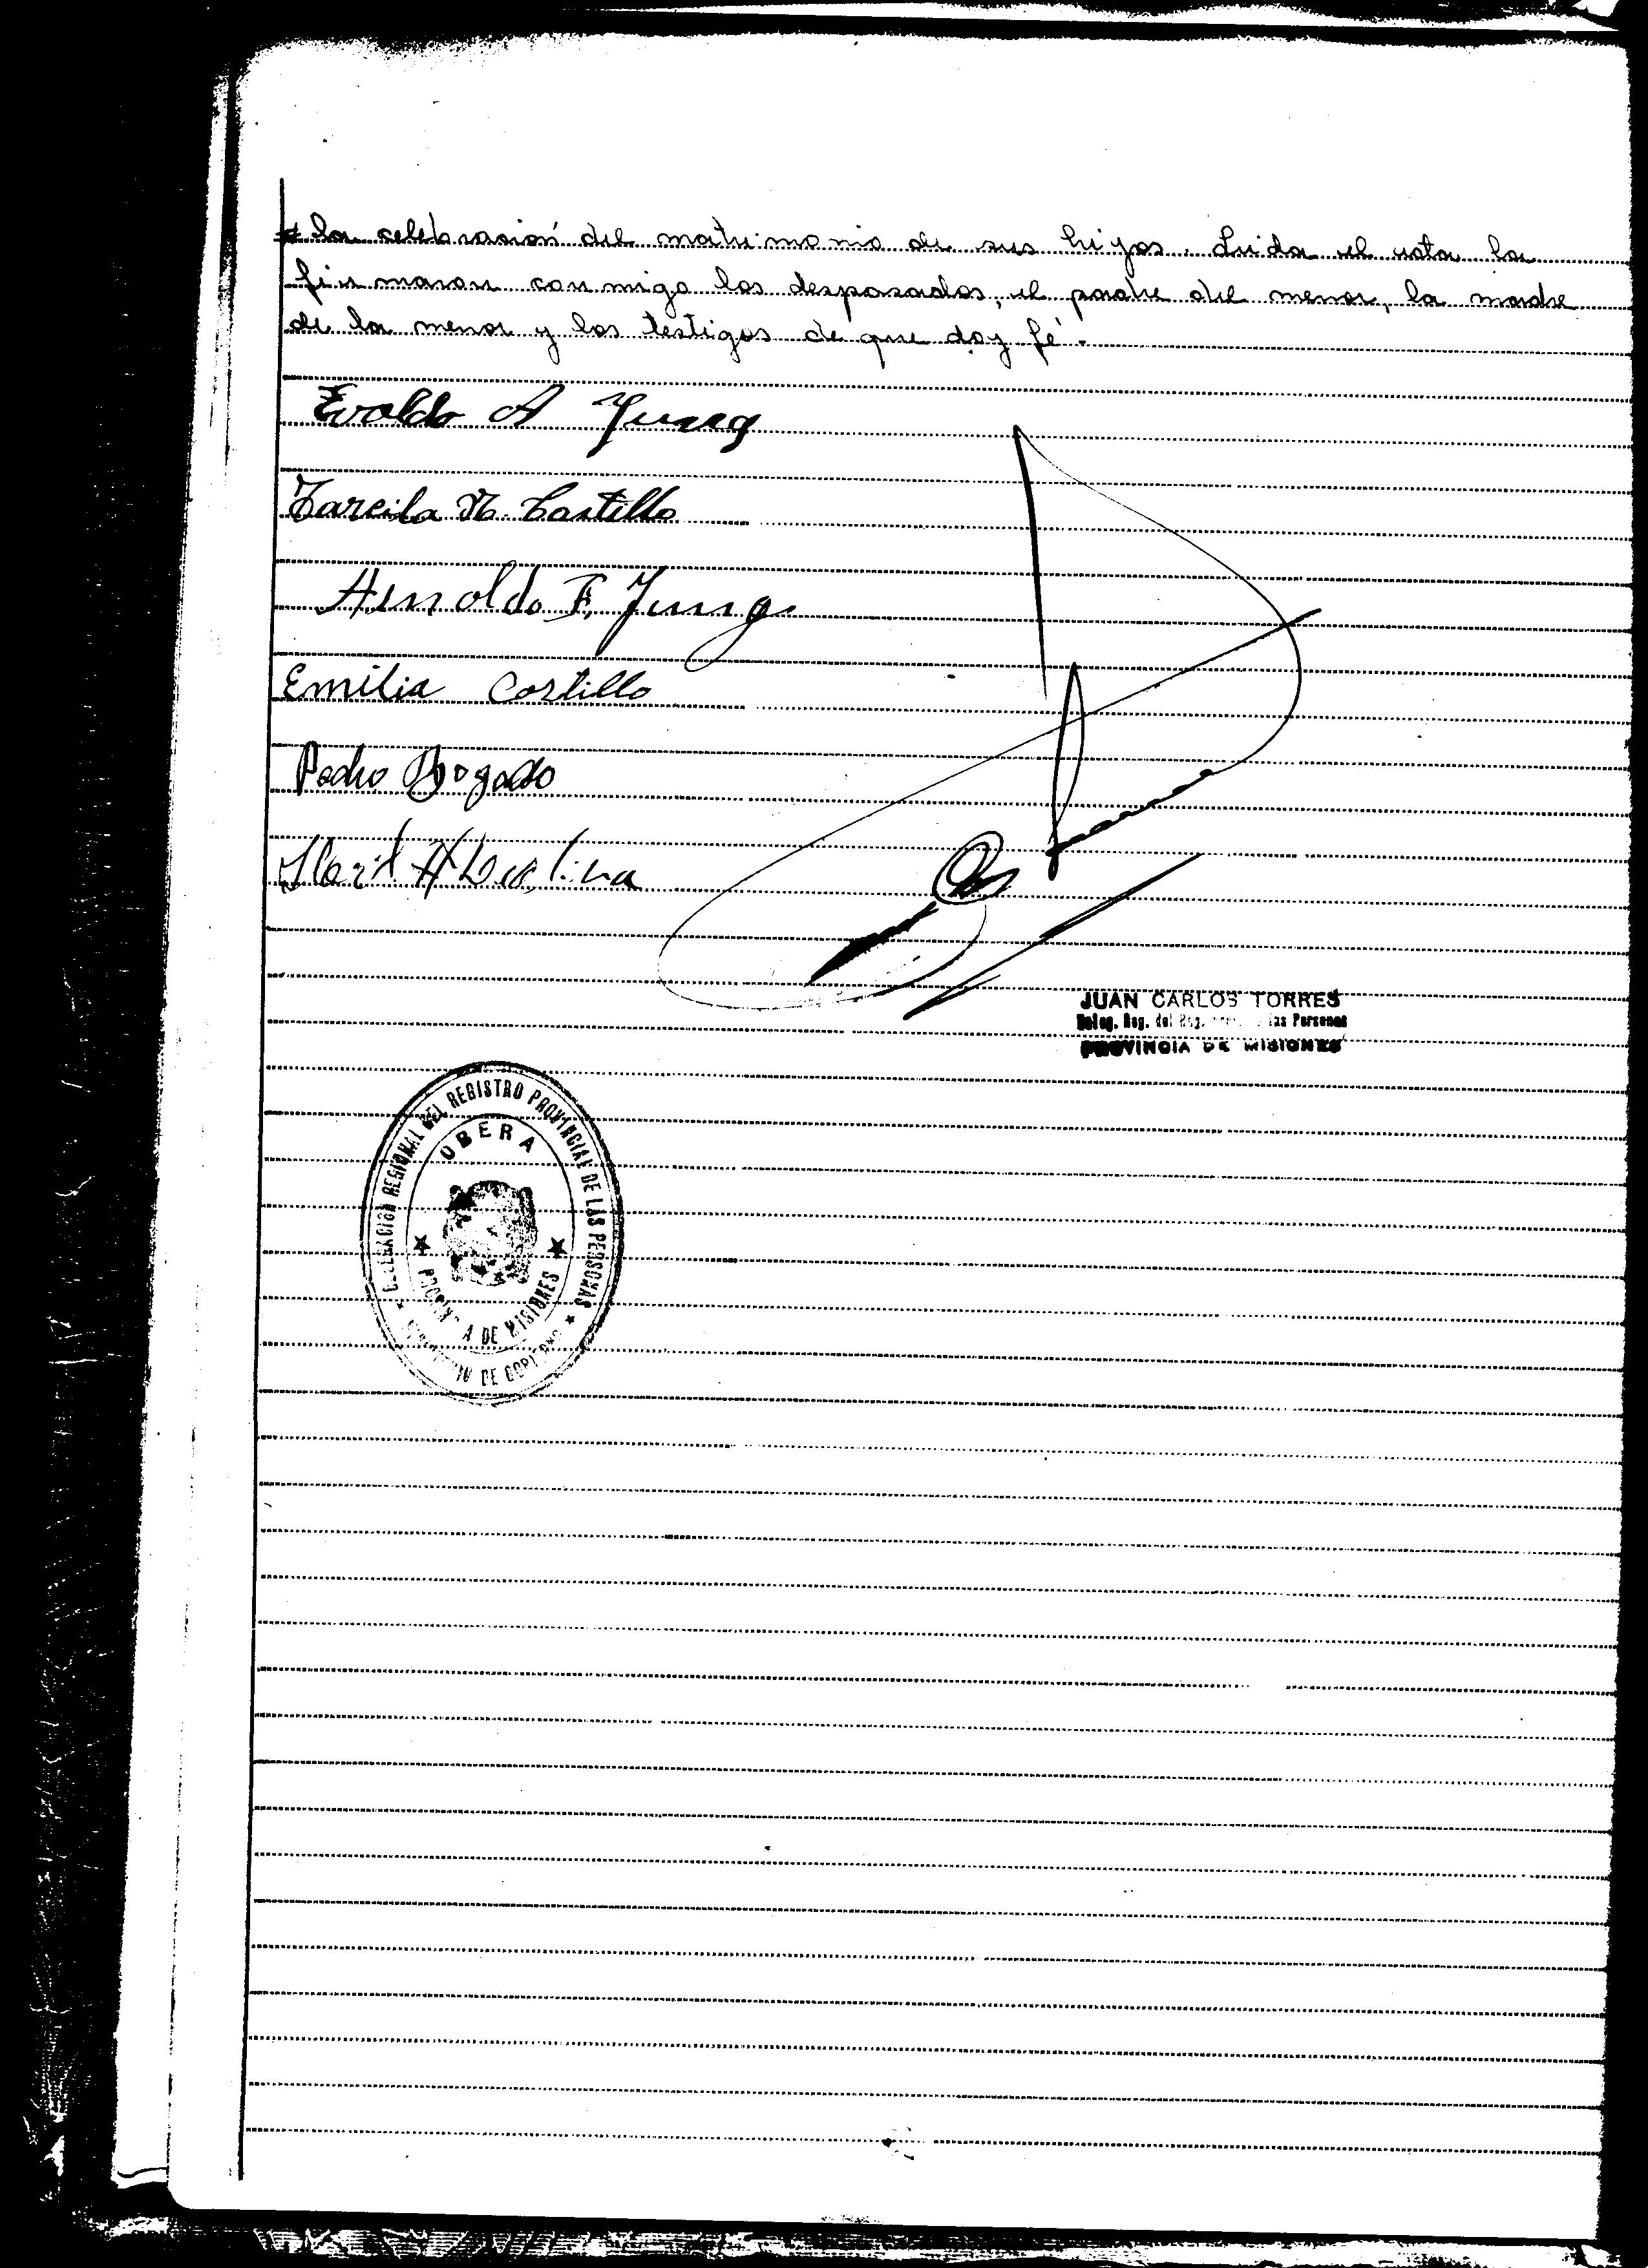 la celebración del matrimonio de sus hijos. Leida el acta la
firmaron conmigo los desposados, el padre del menor, la madre
de la menor y los testigos de que doy fé.
Evaldo A Jung
Tarcila M. Castillo
Arnoldo F. Jung
Emilia Castillo
Pedro Bogado
JUAN CARLOS TORRES
Deleg. Reg. del Reg. las Personas
PROVINCIA DE MISIONES
DELEGACION REGIONAL DEL REGISTRO PROVINCIAL DE LAS PERSONAS
OBERA
DE MISIONES
DE GOBIERNO